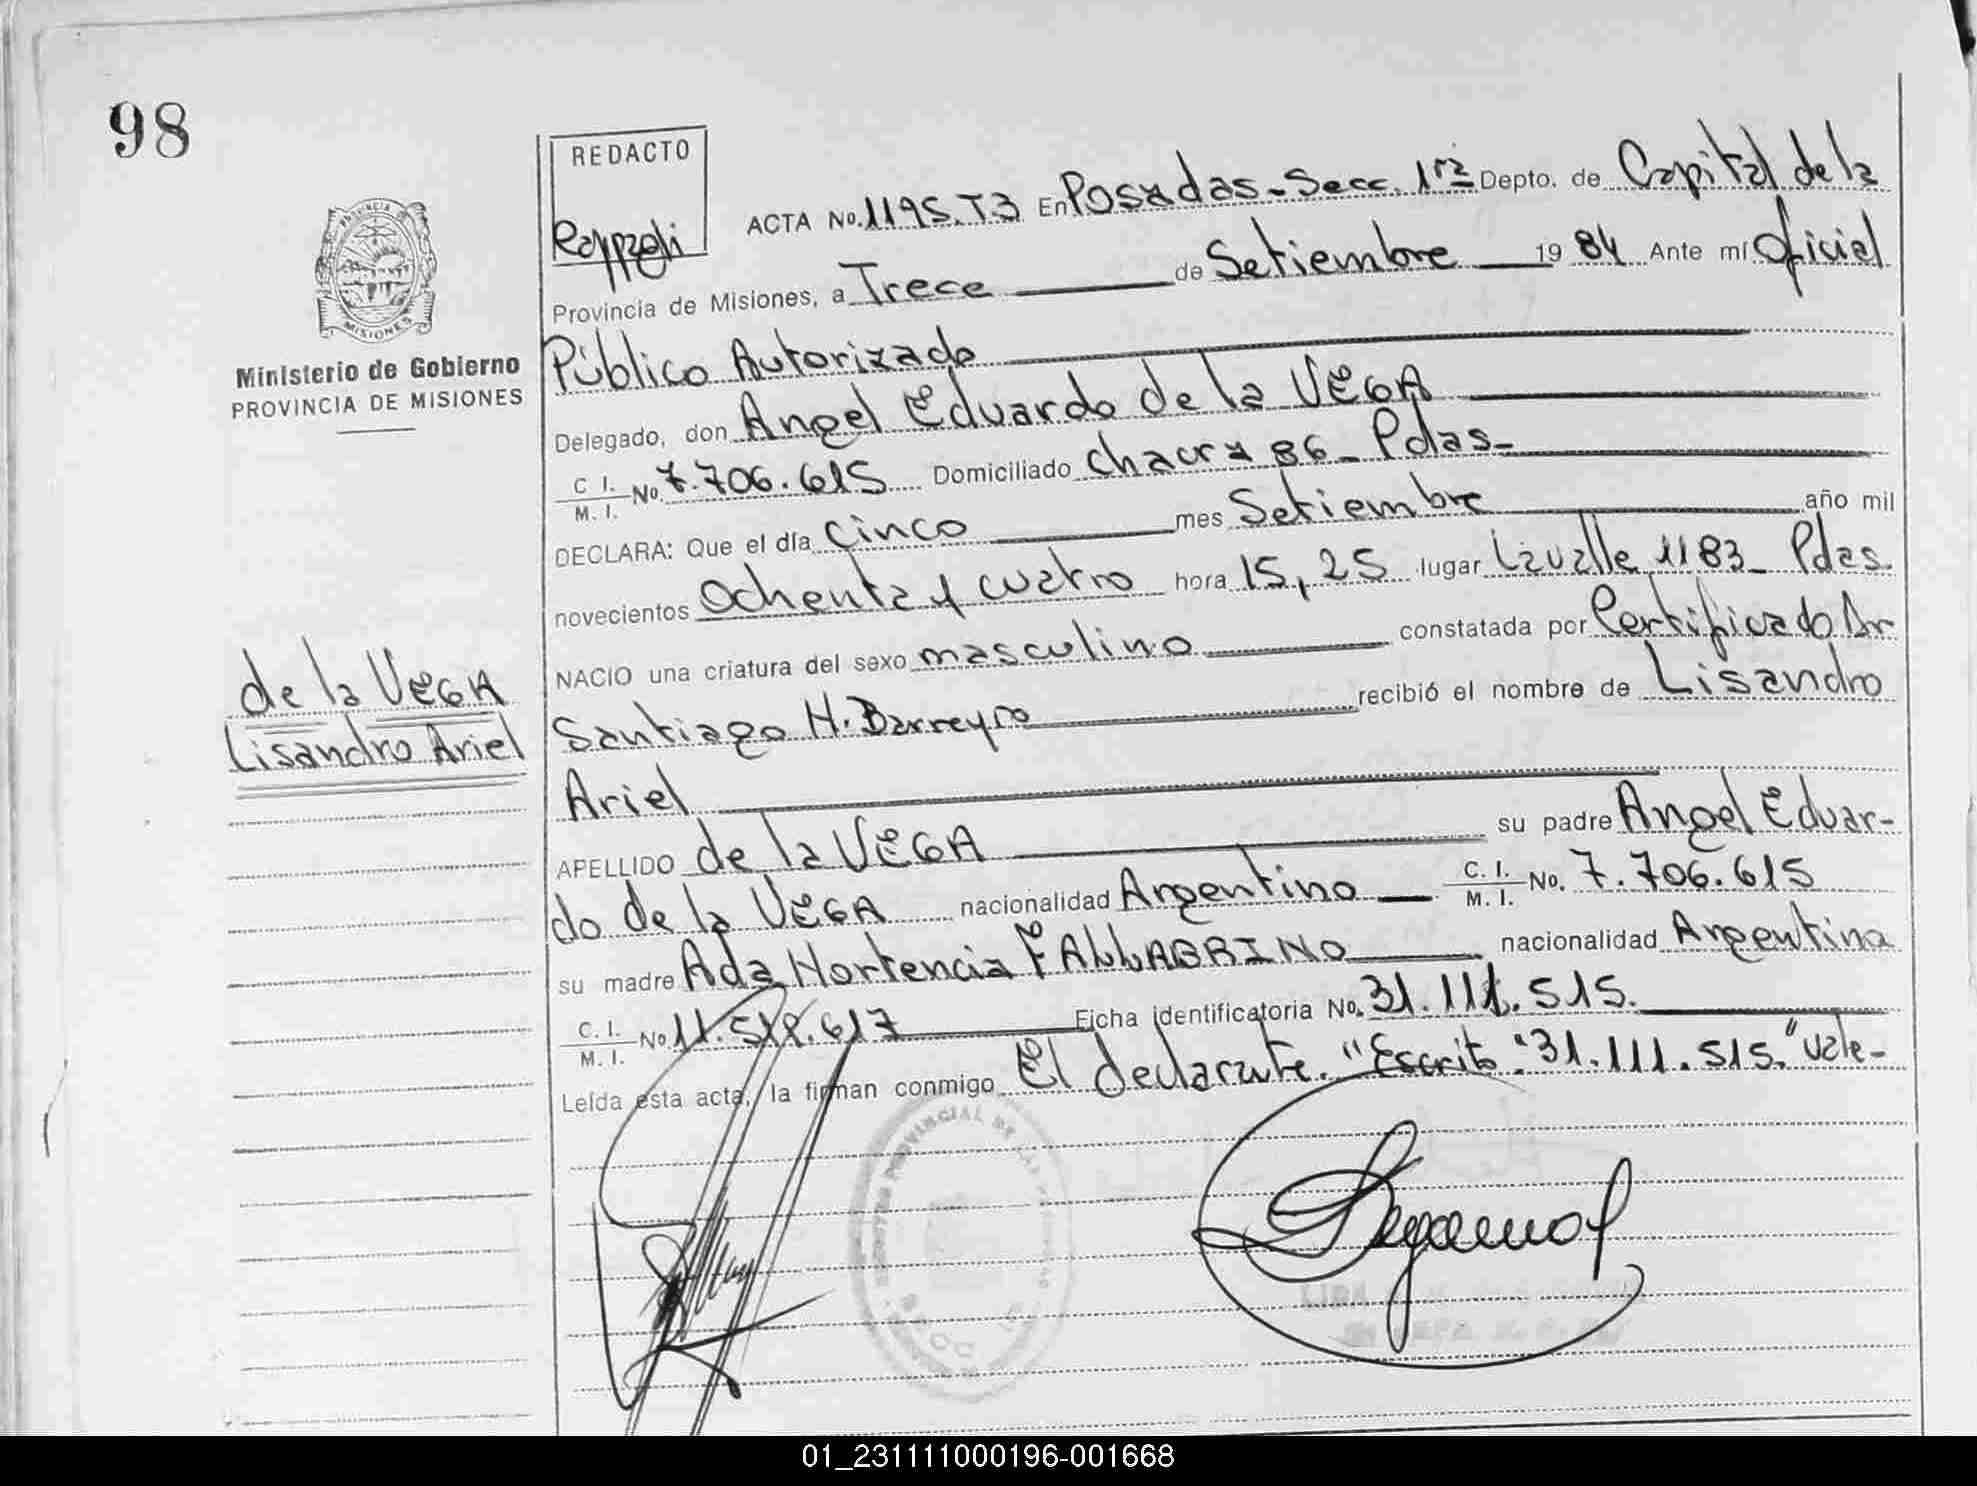 98
REDACTO
ACTA No. 1195. T3 En Posadas - Secc. 1ra Depto. de Capital de la
Provincia de Misiones, a Trece de Setiembre 19 84 Ante mí Oficial
Público Autorizado
Delegado, don Angel Eduardo de la VEGA
C I. / M. I. No. 7.706.615 Domiciliado Chacra 86 - Pdas -
DECLARA: Que el día Cinco mes Setiembre año mil
novecientos Ochenta y cuatro hora 15,25 lugar Lavalle 1183 - Pdas.
NACIO una criatura del sexo masculino constatada por Certificado Dr
Santiago H. Barreyro recibió el nombre de Lisandro
Ariel
APELLIDO de la VEGA su padre Angel Eduar-
do de la VEGA nacionalidad Argentino C. I. / M. I. No. 7.706.615
su madre Ada Hortencia FALLABRINO nacionalidad Argentina
C. I. / M. I. No 11.518.617 Ficha identificatoria No. 31.111.515.
Leída esta acta, la firman conmigo El declarante. "Escrito "31.111.515." vale-
PROVINCIA DE
MISIONES
Ministerio de Gobierno
PROVINCIA DE MISIONES
de la VEGA
Lisandro Ariel
PROVINCIAL DE LAS
01_231111000196-001668